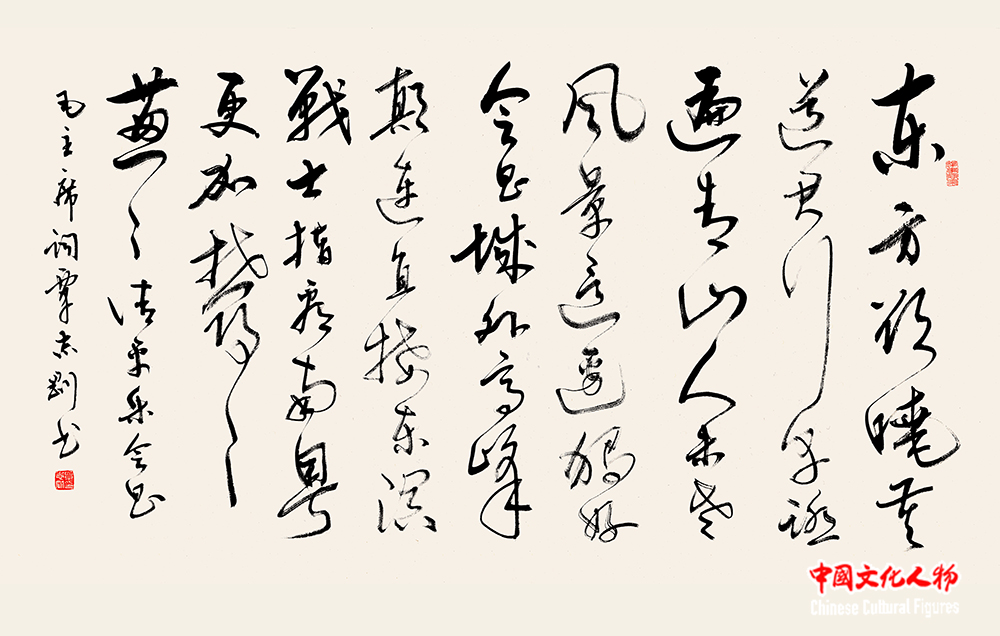 东方欲曉莫
道君行早踏
遍青山人未老
风景這邊獨好
会昌城外高峰
顛連直接东溟
戰士指看南粤
更加鬱〻
蔥〻清平乐会昌
毛主席詞覃志剛书
中國文化人物
Chinese Cultural Figures